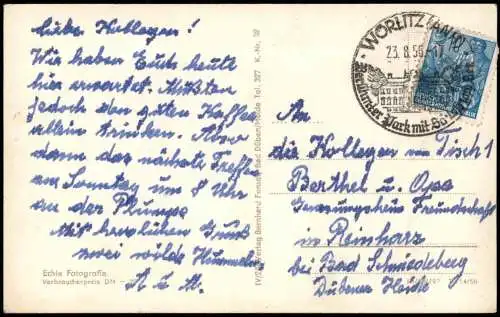 Liebe Kollegen!
Wir haben Euch heute
hier erwartet. Mußten
jedoch den guten Kaffee
allein trinken. Also
dann das nächste Treffen
am Sonntag um 8 Uhr
an der Plumpe
Mit herzlichem Gruß
zwei wilde Hummeln
A u. M.
Echte Fotografie
Verbraucherpreis DM
Verlag Bernhard Bad Düben/Heide Tel. 327 K.-Nr. W
WÖRLITZ (ANH)
23.8.56.-17
Berühmter Park mit
An
die Kollegen von Tisch 1
Berthel u. Opa
Genesungsheim Freundschaft
in Reinharz
bei Bad Schmiedeberg
Dübener Heide